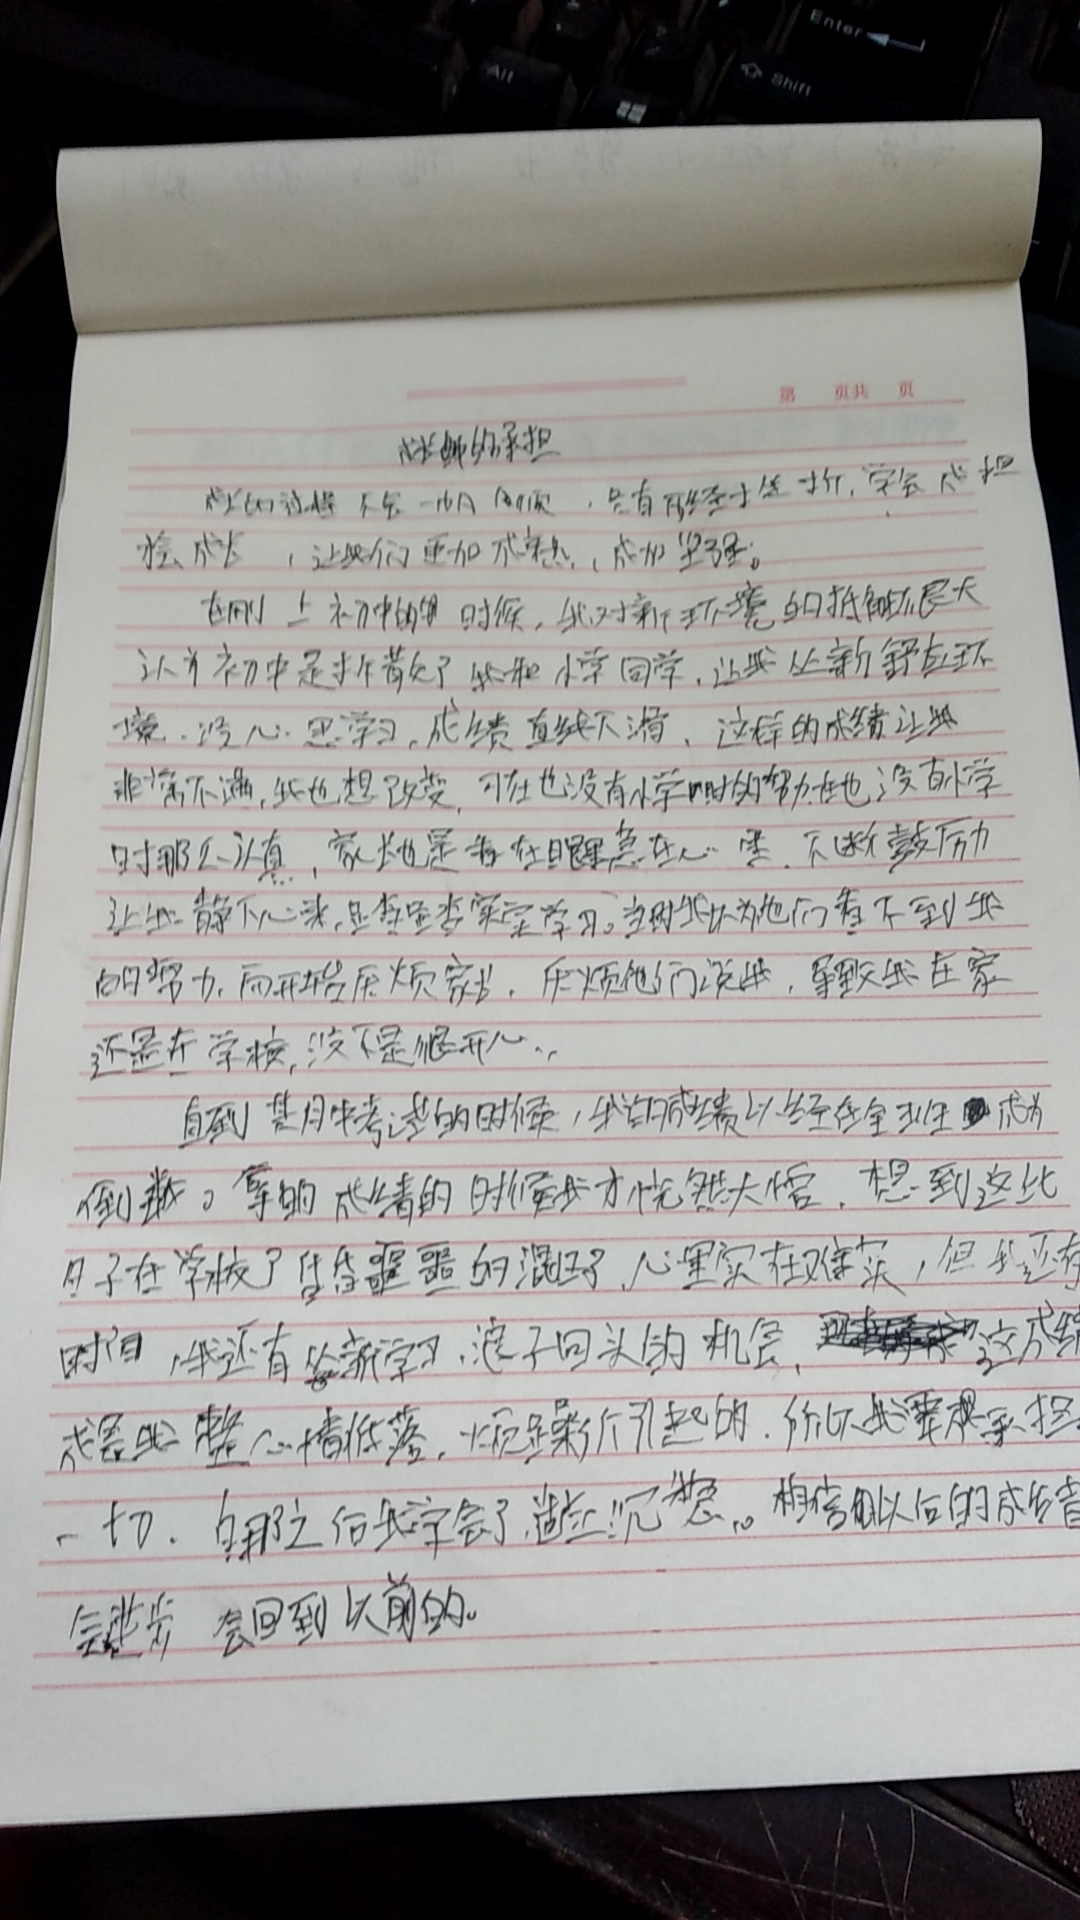 Enter
Alt
Shift
第 页共 页
成长的承担
成长的过程不会一帆风顺，只有经 挫折，学会承担
学会成长，让我们更加成熟，成加坚强。
在刚上初中的时候，我对新环境的抵触很大
认为初中是拆散了我和小学同学，让我从新 环
境，没心思学习，成绩直线下滑，这样的成绩让我
非常不满，我也想改变，可在也没有小学时的努力在也没有小学
时那么认真，家长也是看在眼里急在心里，不断鼓励
让我静下心来， 学习。当时我以为他们看不到我
的努力，而开始厌烦家长，厌烦他们说我，导致我在家
还是在学校，没不是很开心..
直到某月中考试的时候，我的成绩以经在全班成为
倒数。拿的成绩的时候我才恍然大悟，想到这些
日子在学校了昏昏噩噩的混日子，心里实在难实，但我还有
时间，我还有从新学习，浪子回头的机会，这成绩
我整心情低落，烦躁所引起的，所以我要 承担
一切，自那之后我学会了独立沉 。相信 以后的成长
会进步 会回到以前的。